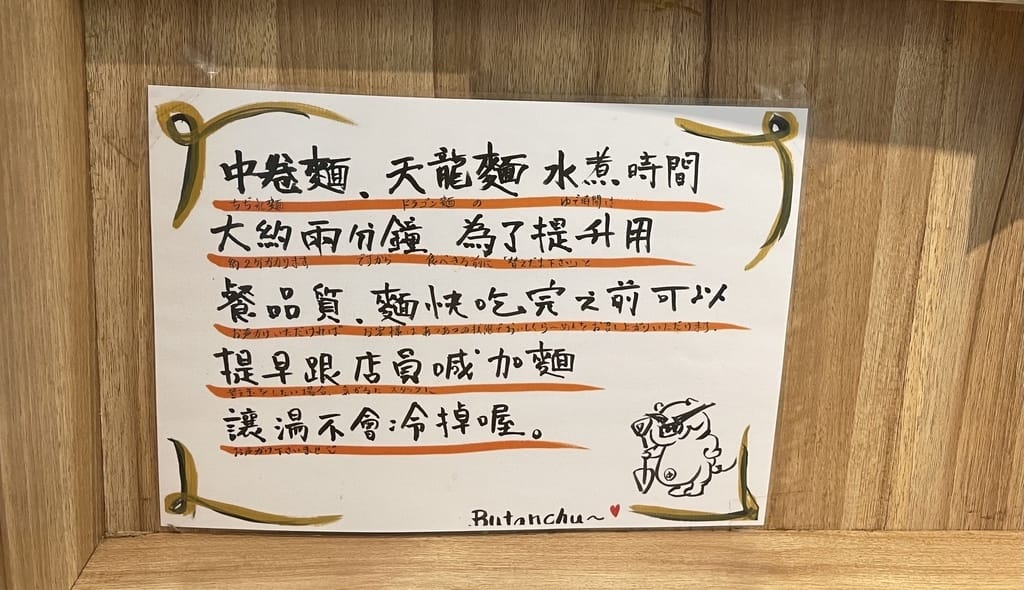 中卷麵、天龍麵 水煮時間
ちぢれ麺 ドラゴン麺 の ゆで時間は
大約兩分鐘 為了提升用
約2分かかります ですから 食べきる前に「替え玉下さい」と
餐品質、麵快吃完之前可以
お声がけいただければ お客様はあつあつの状態でおいしくらーめんをお召し上がりいただけます。
提早跟店員喊加麵
スタッフに
讓湯不會冷掉喔。
お声がけ下さいませ
中
Butanchu~♥